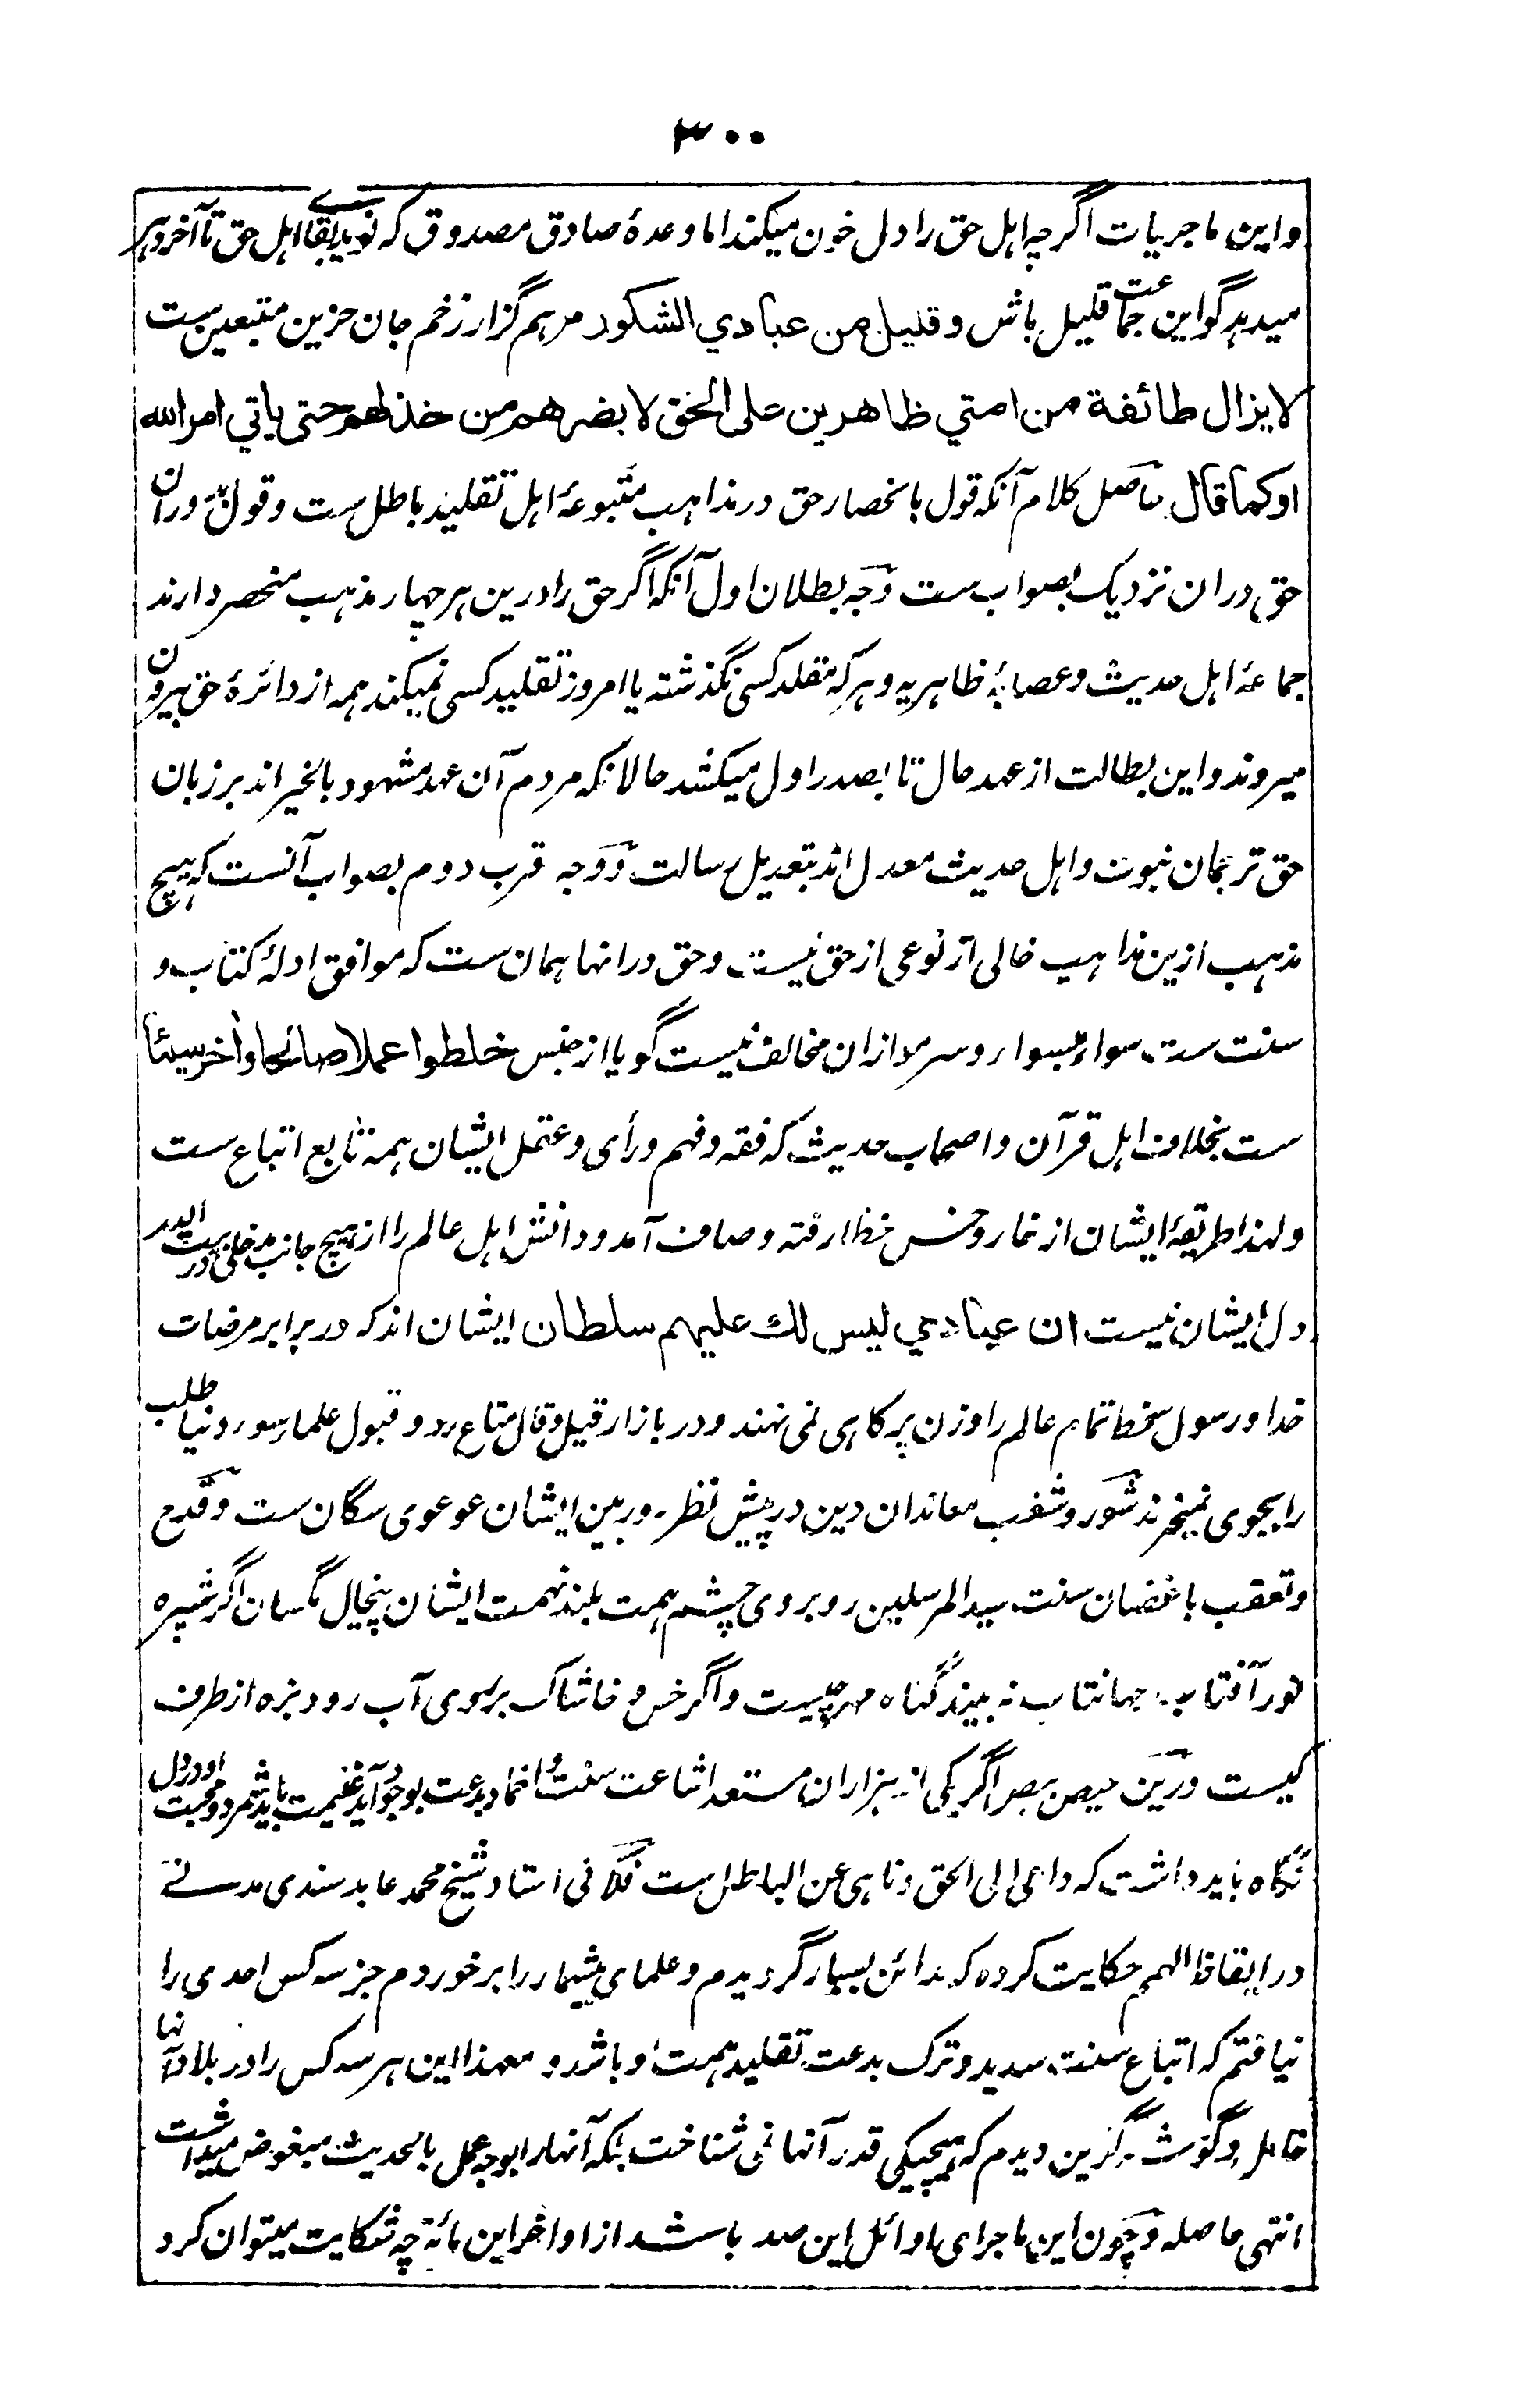 ۳۰۰
واین ماجریات اگرچه اهل حق را دل خون میکند اما وعدهٔ صادق مصدوق که نوید بقای اهل حق تا آخر دهر
میدهد گو این جماعت قلیل باش وقليل من عبادي الشكور مرهم گزار زخم جان حزین متبعین ست
لا يزال طائفة من امتي ظاهرين على الحق لا يضرهم من خذلهم حتى ياتي امر الله
او كما قال حاصل کلام آنکه قول بانحصار حق در مذاهب متبوعهٔ اهل تقلید باطل ست و قول بدوران
حق دران نزدیک بصواب ست وجه بطلان اول آنکه اگر حق را درین هر چهار مذهب منحصر دارند
جماعهٔ اهل حدیث و عصابهٔ ظاهریه و هر که مقلد کسی نگذشته یا امروز تقلید کسی نمیکند همه از دائرهٔ حق بیرون
میروند و این بطالت از عهد حال تا بصدر اول میکشد حالانکه مردم آن عهد مشهود بالخیر اند بر زبان
حق ترجمان نبوت و اهل حدیث معدل اند بتعدیل رسالت و وجه قرب دوم بصواب آنست که هیچ
مذهب ازین مذاهب خالی از نوعی از حق نیست و حق در انها همان ست که موافق ادلهٔ کتاب و
سنت ست سواء بسواء و سرمو ازان مخالف نیست گویا از جنس خلطوا عملا صالحا واخر سيئا
ست بخلاف اهل قرآن و اصحاب حدیث که فقه و فهم و رأی و عقل ایشان همه تابع اتباع ست
و لهذا طریقهٔ ایشان از خار و خس خطا رفته و صاف آمد و دانش اهل عالم را از هیچ جانب مدخلی در
دل ایشان نیست ان عبادي ليس لك عليهم سلطان ایشان اند که در برابر مرضات
خدا و رسول سخط تمام عالم را وزن پر کاهی نمی نهند و در بازار قیل و قال متاع رد و قبول علماء سوء دنیا طلب
را بجوی نمیخرند شور و شغب معاندان دین در پیش نظر دوربین ایشان عوعوی سگان ست و قدح
و تعقب باغضان سنت سید المرسلین روبروی چشم همت بلند نهمت ایشان پنچال مگسان اگر شپره
نور آفتاب جهانتاب نه بیند گناه مهر چیست و اگر خس و خاشاک بر روی آب رود بزه از طرف
کیست و درین حیص بیص اگر یکی از هزاران مستعد اشاعت سنت و اخماد بدعت بوجود آید غنیمت باید شمرد و محبت او در دل
نگاه باید داشت که داعی الی الحق و ناهی عن الباطل ست فلانی استاد شیخ محمد عابد سندی مدنی
در ایقاظ الهمم حکایت کرده که بدائن بسیار گردیدم و علمای بیشمار را برخوردم جز سه کس احدی را
نیافتم که اتباع سنت سدید و ترک بدعت تقلید همت او باشد و معهذا این هر سه کس را در بلاد آنها
خامل و گوشه گزین دیدم که هیچیکی قدر آنها نمی شناخت بلکه آنها را بوجه عمل بالحدیث مبغوض میداشت
انتهی حاصله و چون این ماجرای اوائل این صد باشد از اواخر این مائة چه شکایت میتوان کرد